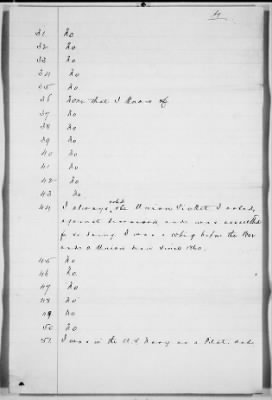 4
31 No
32 No
33 No
34 No
35 No
36 None that I know of
37 No
38 No
39 No
40 No
41 No
42 No
43 No
voted
44 I always the Union Ticket I voted
against and was
for so doing. I was a whig before the War
and a Union man since 1860.
45 No
46 No
47 No
48 No
49 No
50 No
51 I was in the U S Navy as a Pilot. and